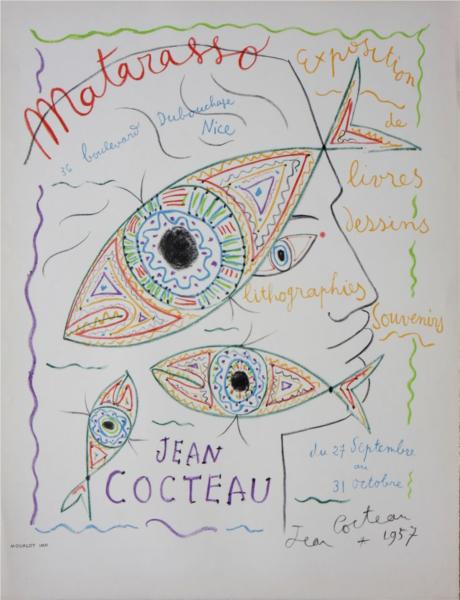 Matarasso
Exposition
36 boulevard Dubouchage
Nice
de
livres
dessins
lithographies
Souvenirs
JEAN
COCTEAU
du 27 Septembre
au
31 octobre
Jean Cocteau
* 1957
MOURLOT IMP.